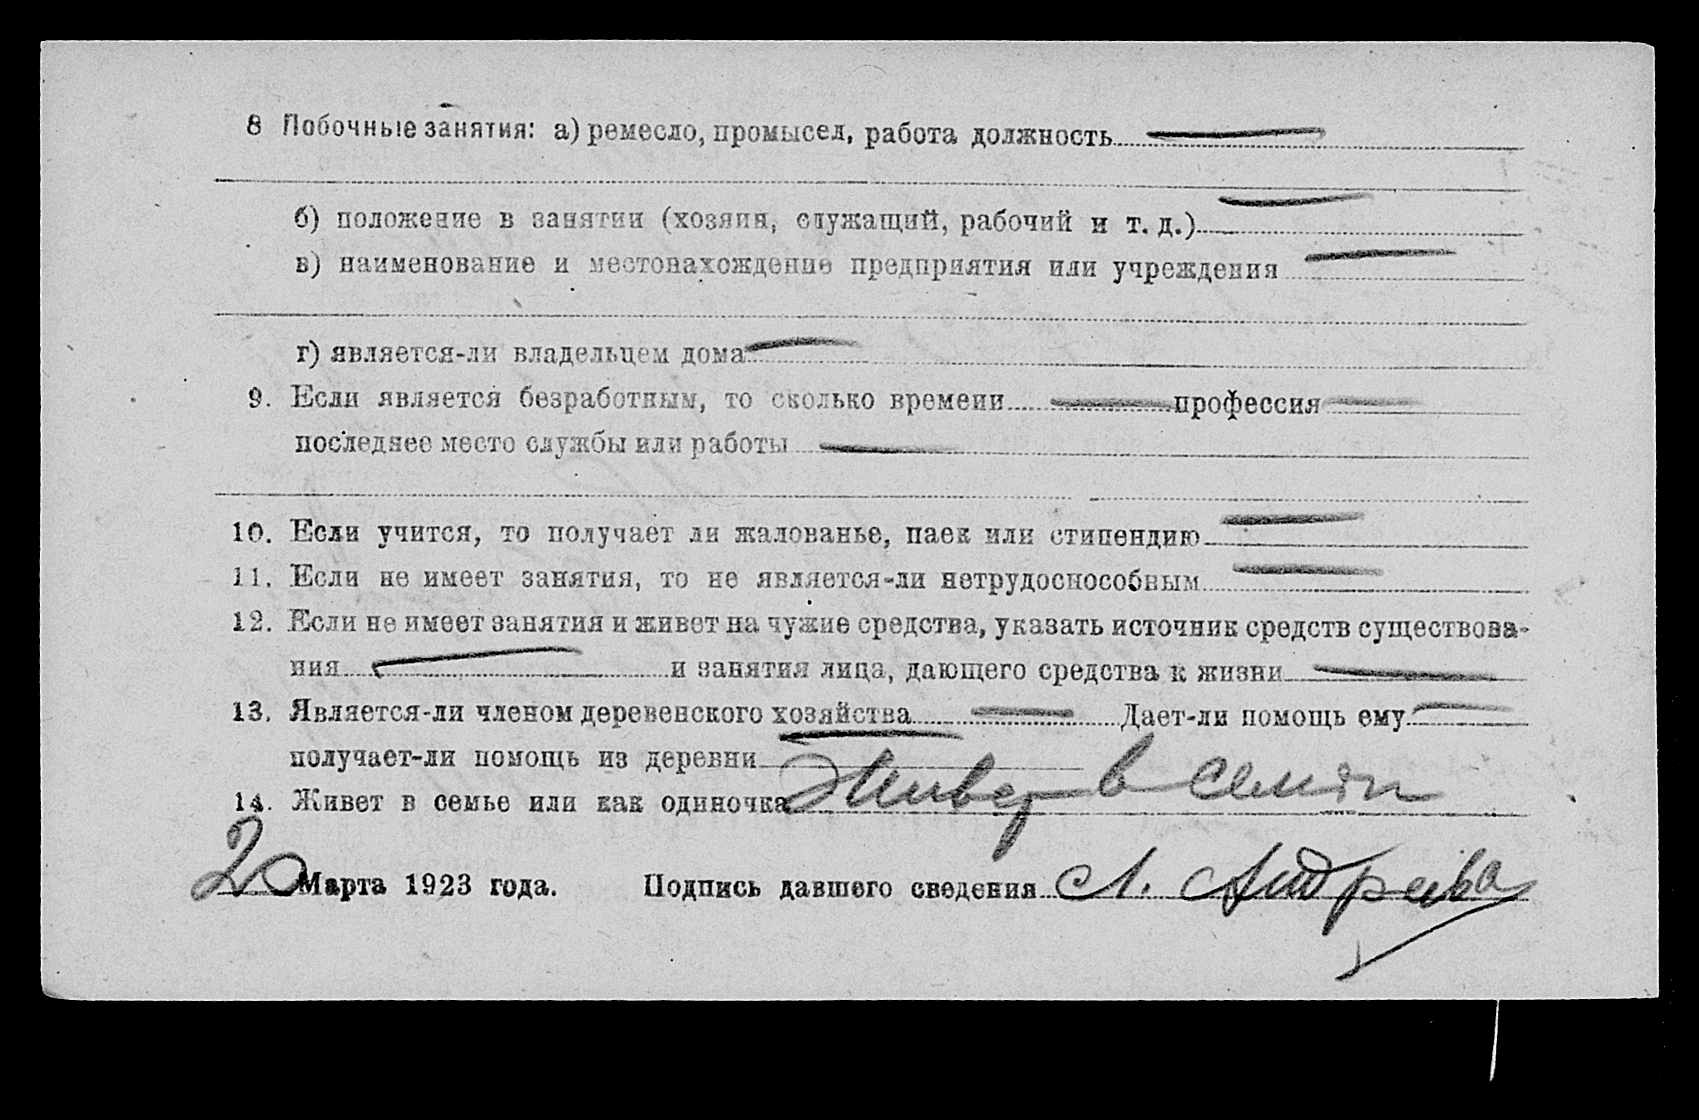 8 Побочные занятия: а) ремесло, промысел, работа должность —
б) положение в занятии (хозяин, служащий, рабочий и т. д.) —
в) наименование и местонахождение предприятия или учреждения —
г) является-ли владельцем дома —
9. Если является безработным, то сколько времени — профессия —
последнее место службы или работы —
10. Если учится, то получает ли жалованье, паек или стипендию —
11. Если не имеет занятия, то не является-ли нетрудоспособным —
12. Если не имеет занятия и живет на чужие средства, указать источник средств существова-
ния — и занятия лица, дающего средства к жизни —
13. Является-ли членом деревенского хозяйства — Дает-ли помощь ему —
получает-ли помощь из деревни —
14. Живет в семье или как одиночка Живет в семьи
20 Марта 1923 года. Подпись давшего сведения Л. Андреева